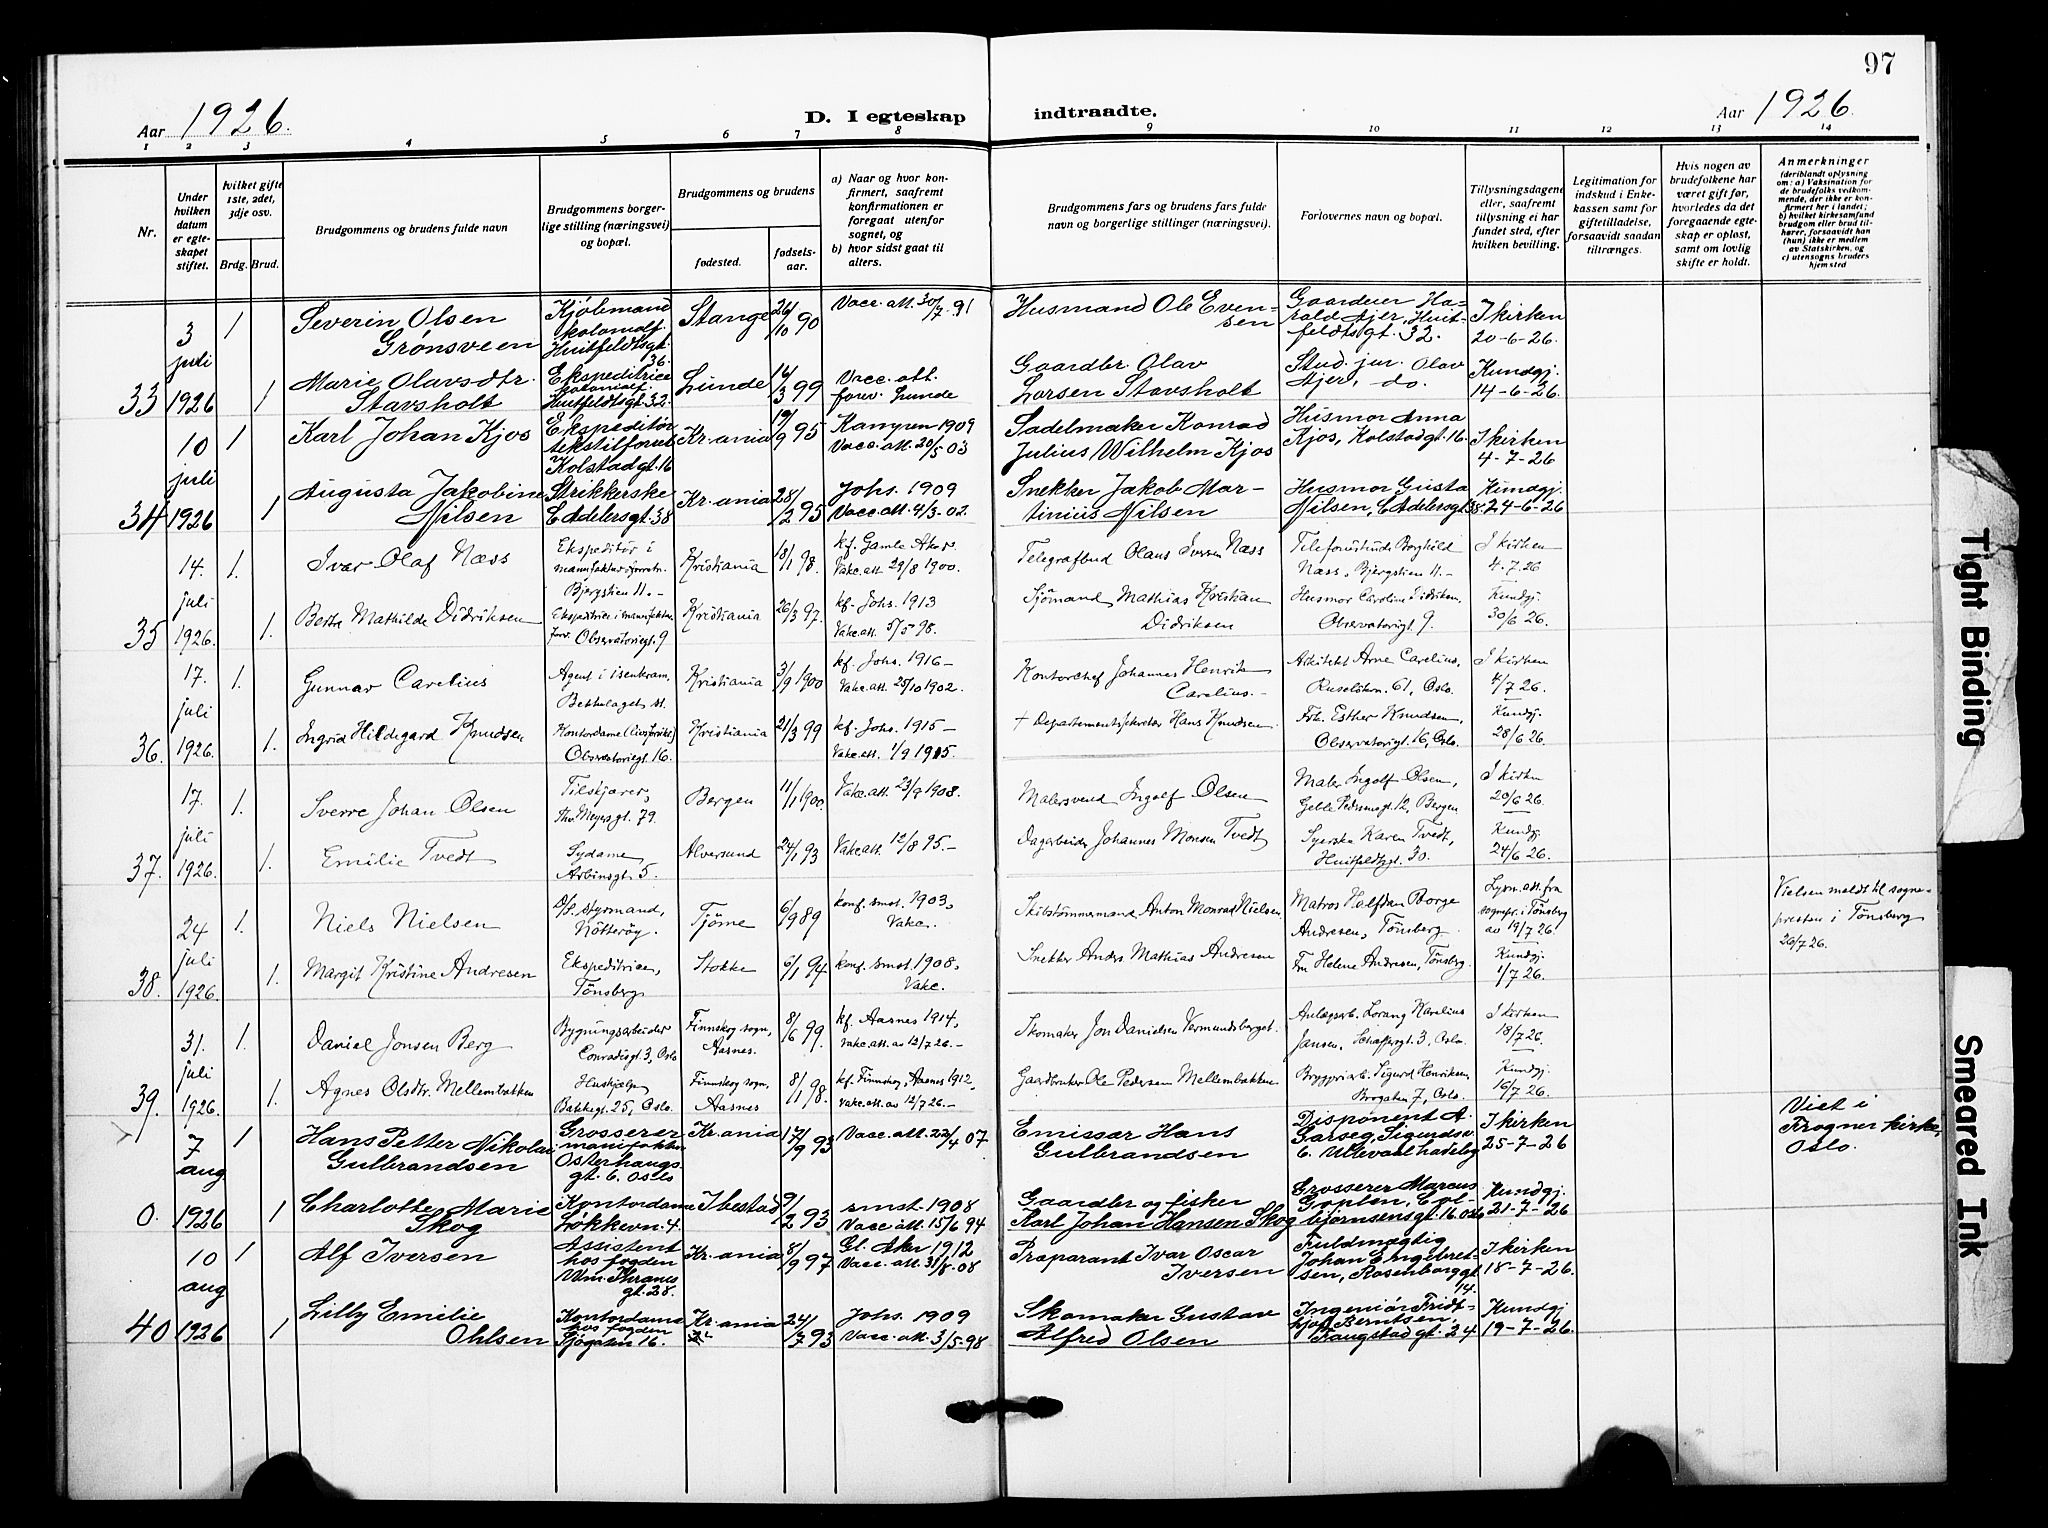 97
Aar 1926. D. I egteskap indtraadte. Aar 1926.
1 2 3 4 5 6 7 8 9 10 11 12 13 14
Nr.
Under hvilken datum er egteskapet stiftet.
hvilket gifte 1ste, 2det, 3dje osv.
Brdg. Brud.
Brudgommens og brudens fulde navn
Brudgommens borgerlige stilling (næringsvei) og bopæl.
Brudgommens og brudens
fødested.
fødselsaar.
a) Naar og hvor konfirmert, saafremt konfirmationen er foregaat utenfor sognet, og
b) hvor sidst gaat til alters.
Brudgommens fars og brudens fars fulde navn og borgerlige stillinger (næringsvei).
Forlovernes navn og bopæl.
Tillysningsdagene eller, saafremt tillysning ei har fundet sted, efter hvilken bevilling.
Legitimation for indskud i Enkekassen samt for giftetilladelse, forsaavidt saadan tiltrænges.
Hvis nogen av brudefolkene har været gift før, hvorledes da det foregaaende egteskap er opløst, samt om lovlig skifte er holdt.
Anmerkninger
(deriblandt oplysning om: a) Vaksination for de brudefolks vedkommende, der ikke er konfirmert her i landet; b) hvilket kirkesamfund brudgom eller brud tilhører, forsaavidt han (hun) ikke er medlem av Statskirken, og c) utensogns bruders hjemsted
33 3 juli 1926
1 Severin Olsen Grønsveen
Kjøbmand kolonialf. Huitfeldtsgt. 36.
Stange 26/10 90
Vacc. att. 30/7-91
Husmand Ole Evensen
Gaardeier Harald Ajer, Huitfeldtsgt. 32.
I kirken 20-6-26.
1 Marie Olavsdtr. Stavsholt
Ekspeditrice kolonialf. Huitfeldtsgt. 32.
Lunde 14/3 99
Vacc. att. forev. Lunde
Gaardbr. Olav Larsen Stavsholt
Stud. jur. Olav Ajer, do.
Kundgj. 14-6-26.
34 10 juli 1926
1 Karl Johan Kjos
Ekspeditør tekstilforret. Kolstadgt. 16
Kr.ania 19/9 95
Kampen 1909 Vacc. att. 20/5-03
Sadelmaker Konrad Julius Wilhelm Kjos
Husmor Anna Kjos, Kolstadgt. 16.
I kirken 4-7-26
1 Augusta Jakobine Nilsen
Strikkerske C. Adelersgt. 38
Kr.ania 28/2 95
Johs. 1909 Vacc. att. 4/3-02.
Snekker Jakob Martinius Nilsen
Husmor Gusta Nilsen, C. Adelersgt. 38.
Kundgj. 24-6-26
35 14. juli 1926.
1. Ivar Olaf Næss
Ekspeditør i manufakturforretn. Bjergstien 11.-
Kristiania 18/1 98.
kf. Gamle Aker. Vakc. att. 29/8 1900.
Telegrafbud Olaus Iversen Næss
Telefonistinde Borghild Næss, Bjergstien 11.-
I kirken 4.7.26
1. Berta Mathilde Didriksen
Ekspeditrice i manufaktur forr. Observatoriegt. 9
Kristiania 26/3 97.
kf. Johs. 1913 Vakc. att. 5/5 98.
Sjömand Mathias Kristian Didriksen
Husmor Caroline Didriksen, Observatorigt. 9.
Kundgj. 30/6 26.
36. 17. juli 1926.
1. Gunnar Carelius
Agent i isenkram, Bestu​lagst. st.
Kristiania 3/9 1900
kf. Johs. 1916 - Vakc. att. 25/10 1902.
Kontorchef Johannes Henrik Carelius.-
Arkitekt Arne Carelius, Ruseløkvn. 61, Oslo.
I kirken 4/7 26.
1. Ingrid Hildegard Knudsen
Kontordame (livsforsikr.) Observatoriegt. 16.
Kristiania 21/3 99
kf. Johs. 1915 - Vakc. att. 1/9 1905.
+ Departementssekretær Hans Knudsen.
Frk. Esther Knudsen, Observatorigt. 16, Oslo.
Kundgj. 28/6 26.
37. 17. juli 1926.
1. Sverre Johan Olsen
Tilskjærer, Thv. Meyersgt. 79.
Bergen 11/1 1900.
Vakc. att. 23/9 1908.
Malersvend Ingolf Olsen
Maler Ingolf Olsen, Geble Pedersensgt. 12, Bergen.
I kirken 20/6 26.
1. Emilie Tvedt
Sydame Arbinsgt. 5.
Alversund 24/1 93
Vakc. att. 12/8 95.-
Dagarbeider Johannes Monsen Tvedt
Syerske Karen Tvedt, Huitfeldtsgt. 30.
Kundgj. 24/6 26.
38. 24 juli 1926.
1. Niels Nielsen
S/S. styrmand, Nötteröy.
Tjöme 6/9 89
konf. smst. 1903, Vakc.
Skibstömmermand Anton Monrad Nielsen
Matros Halfdan Borge Andresen, Tönsberg.
Lysn. att. fra sognepr. i Tönsberg av 19/7 26.
Vielsen meldt til sognepresten i Tönsberg 26/7 26.
1. Margit Kristine Andresen
Ekspeditrice, Tönsberg
Stokke 6/1 94
konf. smst. 1908, Vakc.
Snekker Anders Mathias Andresen
Fru Helene Andresen, Tönsberg.
Kundgj. 1/7 26.
39. 31. juli 1926.
1. Daniel Jonsen Berg
Bygningsarbeider Conradisgt. 3, Oslo
Finnskog sogn, Aasnes. 8/6 99.
kf. Aasnes 1914, Vakc. att. av 12/7 26.-
Skomaker Jon Danielsen Vermundsberget.
Anlægsarb. Lorang Karelius Jansen, Schaffersgt. 3, Oslo.
I kirken 18/7 26.
1. Agnes Olsdtr. Mellembakken
Hushjælp Bakkegt. 25, Oslo.
Finnskog sogn, Aasnes 8/1 98.
kf. Finnskog, Aasnes 1912, Vakc. att. av 12/7 26.-
Gaardbruker Ole Pedersen Mellembakken
Bryggeriarb. Sigurd Henriksen, Borgaten 7, Oslo.
Kundgj. 16/7 26.
0. 7 aug 1926
1 Hans Petter Nikolai Gulbrandsen
Grosserer i manufaktur Osterhausgt. 6. Oslo
Kr.ania 17/9 93
Vacc. att. 22/4 07
Emissær Hans Gulbrandsen
Disponent A. Garseg, Sigurdsv. 6. Ullevaal haveby
I kirken 25-7-26
Viet i Frogner kirke, Oslo.
1 Charlotte Marie Skog
Kontordame Løkkevn. 4.
Ibestad 9/2 93
smst. 1908 Vacc. att. 15/6 94
Gaardbr og fisker Karl Johan Hansen Skog
Grosserer Marcus Goplen, Colbjørnsensgt. 16. Oslo
Kundgj. 21-7-26
40 10 aug 1926
1 Alf Iversen
Assistent hos fogden Wm. Thranesgt. 28.
Kr.ania 8/9 97
Gl. Aker 1912 Vacc. att. 31/8-08
Præparant Ivar Oscar Iversen
Fuldmægtig Johan Engebretsen, Rosenborggt. 14.
I kirken 18-7-26.
1 Lilly Emilie Ohlsen
Kontordame hos fogden Sjøgaten 16.
Kr.ania 24/7 93
Johs. 1909 Vacc. att. 3/5-98
Skomaker Gustav Alfred Olsen
Ingeniør Fridtjof Berntsen, Kaugstad gt. 24
Kundgj. 19-7-26.
Tight Binding
Smeared Ink